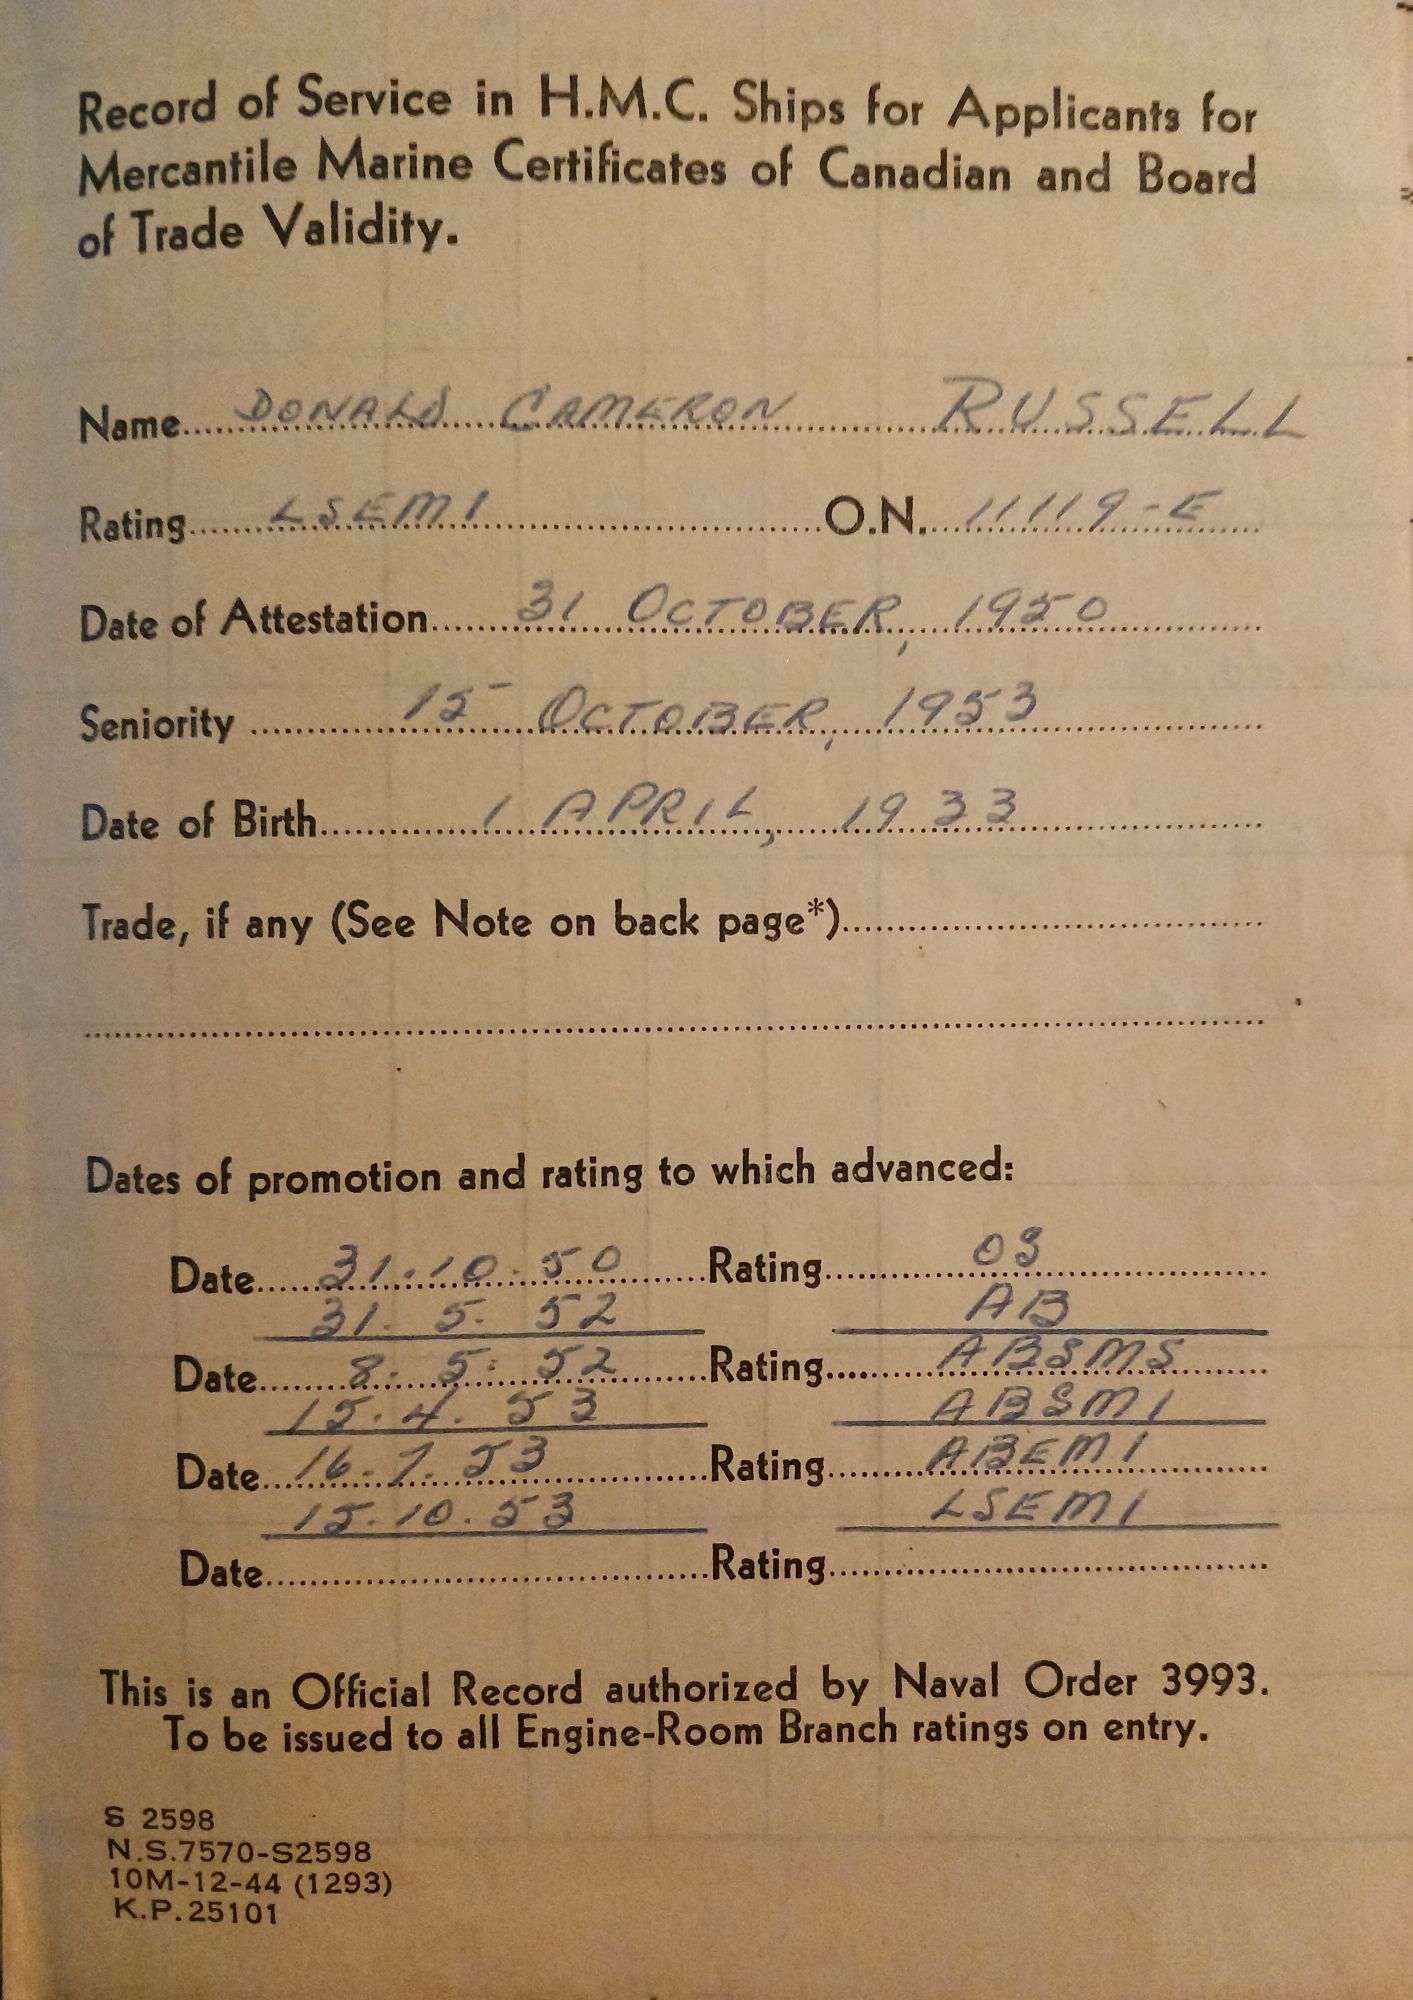 Record of Service in H.M.C. Ships for Applicants for
Mercantile Marine Certificates of Canadian and Board
of Trade Validity.
Name DONALD CAMERON RUSSELL
Rating LSEM1 O.N. 11119-E
Date of Attestation 31 OCTOBER, 1950
Seniority 15 OCTOBER, 1953
Date of Birth 1 APRIL, 1933
Trade, if any (See Note on back page*)
Dates of promotion and rating to which advanced:
Date 31.10.50 Rating OS
31. 5. 52 AB
Date 8. 5. 52 Rating ABSMS
15.4. 53 ABSM1
Date 16.7.53 Rating ABEM1
15.10.53 LSEM1
Date Rating
This is an Official Record authorized by Naval Order 3993.
To be issued to all Engine-Room Branch ratings on entry.
S 2598
N.S.7570-S2598
10M-12-44 (1293)
K.P.25101